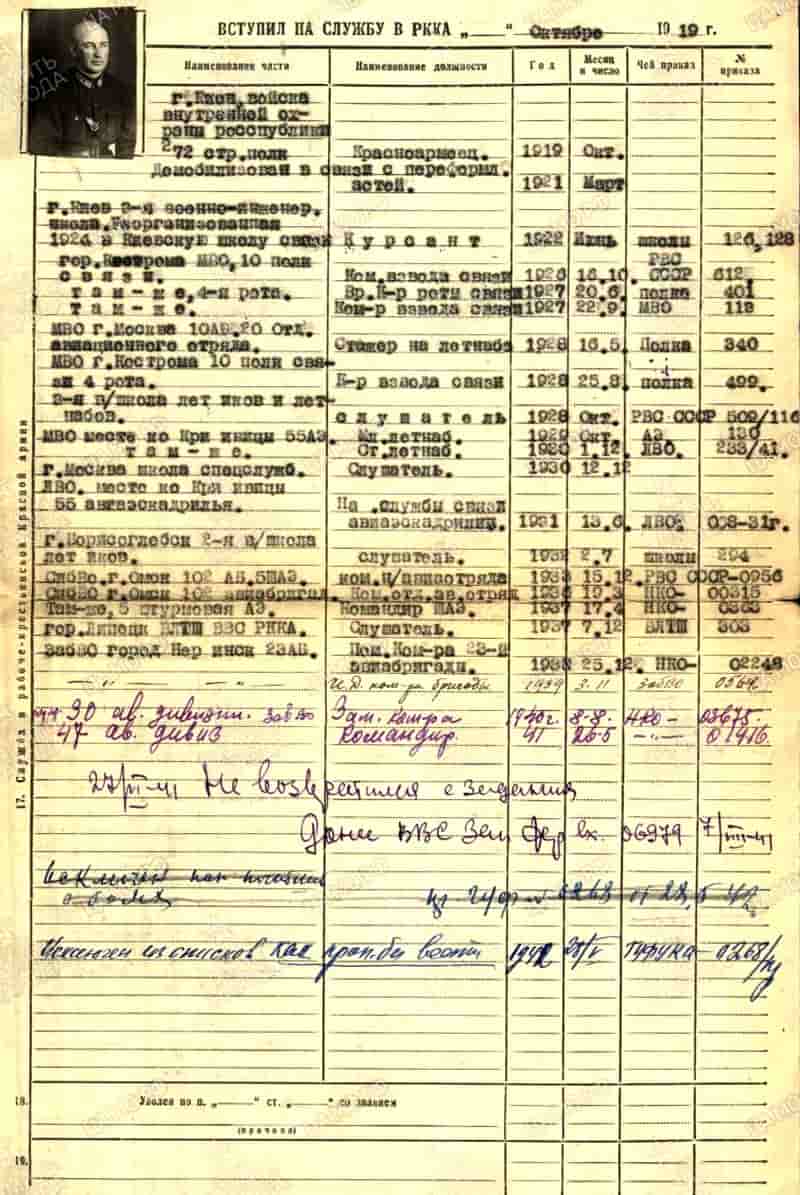 ВСТУПИЛ НА СЛУЖБУ В РККА „——“ Октябре 1919 г.
Наименование части Наименование должности Год Месяц и число Чей приказ № приказа
г.Киев, войска
внутренней ох-
раны республики
272 стр.полк Красноармеец. 1919 Окт.
Демобилизован в связи с переформ.
частей. 1921 Март
г.Киев 3-я военно-инженер.
школа. Реорганизованная
1924 в Киевскую школу связи Курсант 1922 Июнь школы 126,128
гор.Кострома МВО, 10 полк РВС
связи. Ком.взвода связи 1926 16.10. СССР 612
там-же, 4-я рота. Вр.К-р роты связи 1927 20.6. полка 401
там-же. Ком-р взвода связи 1927 22.9. МВО 113
МВО г.Москва 10АБ.20 Отд.
авиационного отряда. Стажер на летнаба 1928 16.5. Полка 340
МВО г.Кострома 10 полк свя-
зи 4 рота. К-р взвода связи 1928 25.8. полка 499.
3-я в/школа летчиков и лет-
набов. слушатель 1928 Окт. РВС СССР 509/116
МВО местечко Кречивицы 55АЭ. Мл.летнаб. 1929 Окт. АЭ 130
там-же. Ст.летнаб. 1930 1.12. ЛВО. 233/41.
г.Москва школа спецслужб. Слушатель. 1930 12.12
ЛВО. местечко Кречивицы
55 авиаэскадрилья. На.службы связи
авиаэскадрилии. 1931 13.6. ЛВО 008-31г.
г.Борисоглебск 2-я в/школа
летчиков. слушатель. 1932 2.7 школы 294
СибВО.г.Омск 102 АБ.5ШАЭ. ком.н/авиаотряда 1933 15.12. РВС СССР-0956
СибВО г.Омск 102 авиабригад. Ком.отд.ав.отряд 1936 19.3 НКО- 00315
Там-же, 5 штурмовая АЭ. Командир ШАЭ. 1937 17.4 НКО-
гор.Липецк ВЛТШ ВВС РККА. Слушатель. 1937 7.12 ВЛТШ 303
ЗабВО город Нерчинск 23АБ. Пом.Ком-ра 23-й
авиабригады. 1938 25.12. НКО- 02248
—"— —"— И.Д. ком-ра бригады 1939 3.11 ЗабВО 0564
30 ав. дивизии. ЗабВО Зам. ком-ра 1940г. 8-8. НКО- 03675
47 ав. дивиз Командир. 41 26-5 —"— 01416.
Не возвратился с задания
Донес ВВС Зап фр вх. 06979 7/VIII-41
Исключен как погибший
в боях 0268 от 28.5 42
Исключен из списков как проп. без вести 1942 28/V ГУФУКА 0268/
17. Служба в рабоче-крестьянской Красной армии
18. Уволен по п. „——“ ст. „——“ со званием
(причина)
19.